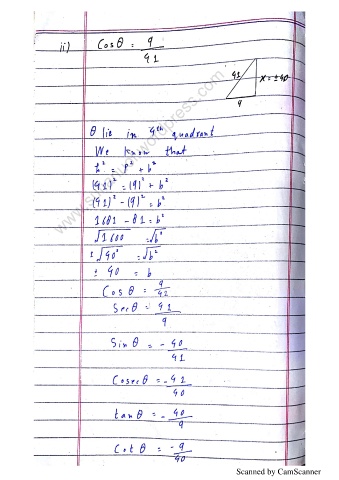 ii) Cosθ = 9/41
41 x = ±40
9
θ lie in 4th quadrant
We know that
h² = P² + b²
(41)² = (9)² + b²
(41)² - (9)² = b²
1681 - 81 = b²
√1600 = √b²
± √40² = √b²
± 40 = b
Cosθ = 9/41
Secθ = 41/9
Sinθ = -40/41
Cosecθ = -41/40
tanθ = -40/9
Cotθ = -9/40
Scanned by CamScanner